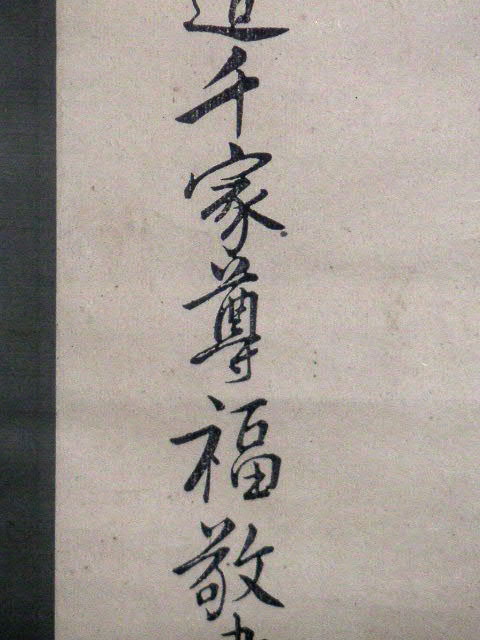 千家尊福敬